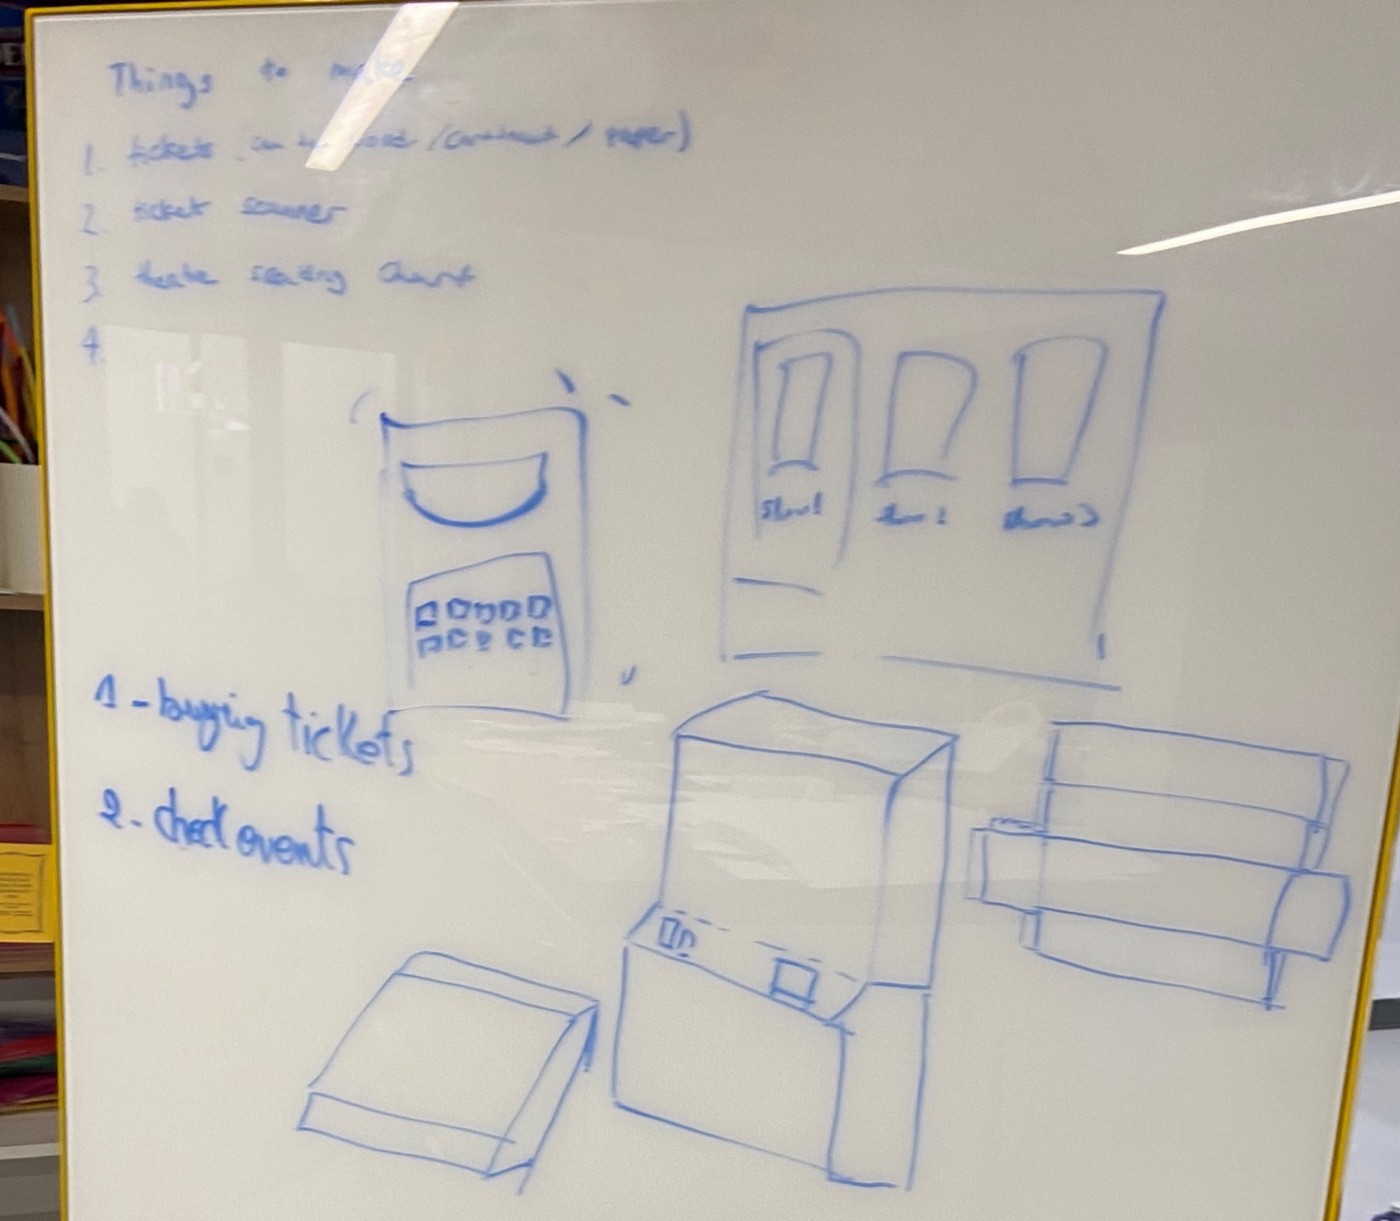 Things to make
1. tickets (can be / / paper)
2. ticket scanner
3. theatre seating chart
4.
show1 show 2 show 3
1 - buying tickets
2 - check events